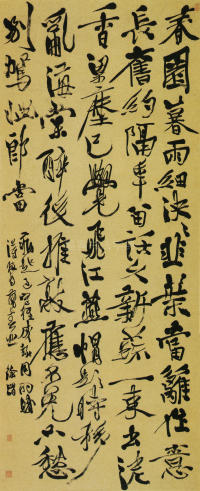 春園暮雨細泱泱韭葉當籬作意
長舊約隔年留話久新蔬一束出泥
香梁塵已覺飛江燕帽影時移
亂海棠醉後推敲應不免只愁
別駕惱郎當
徐渭